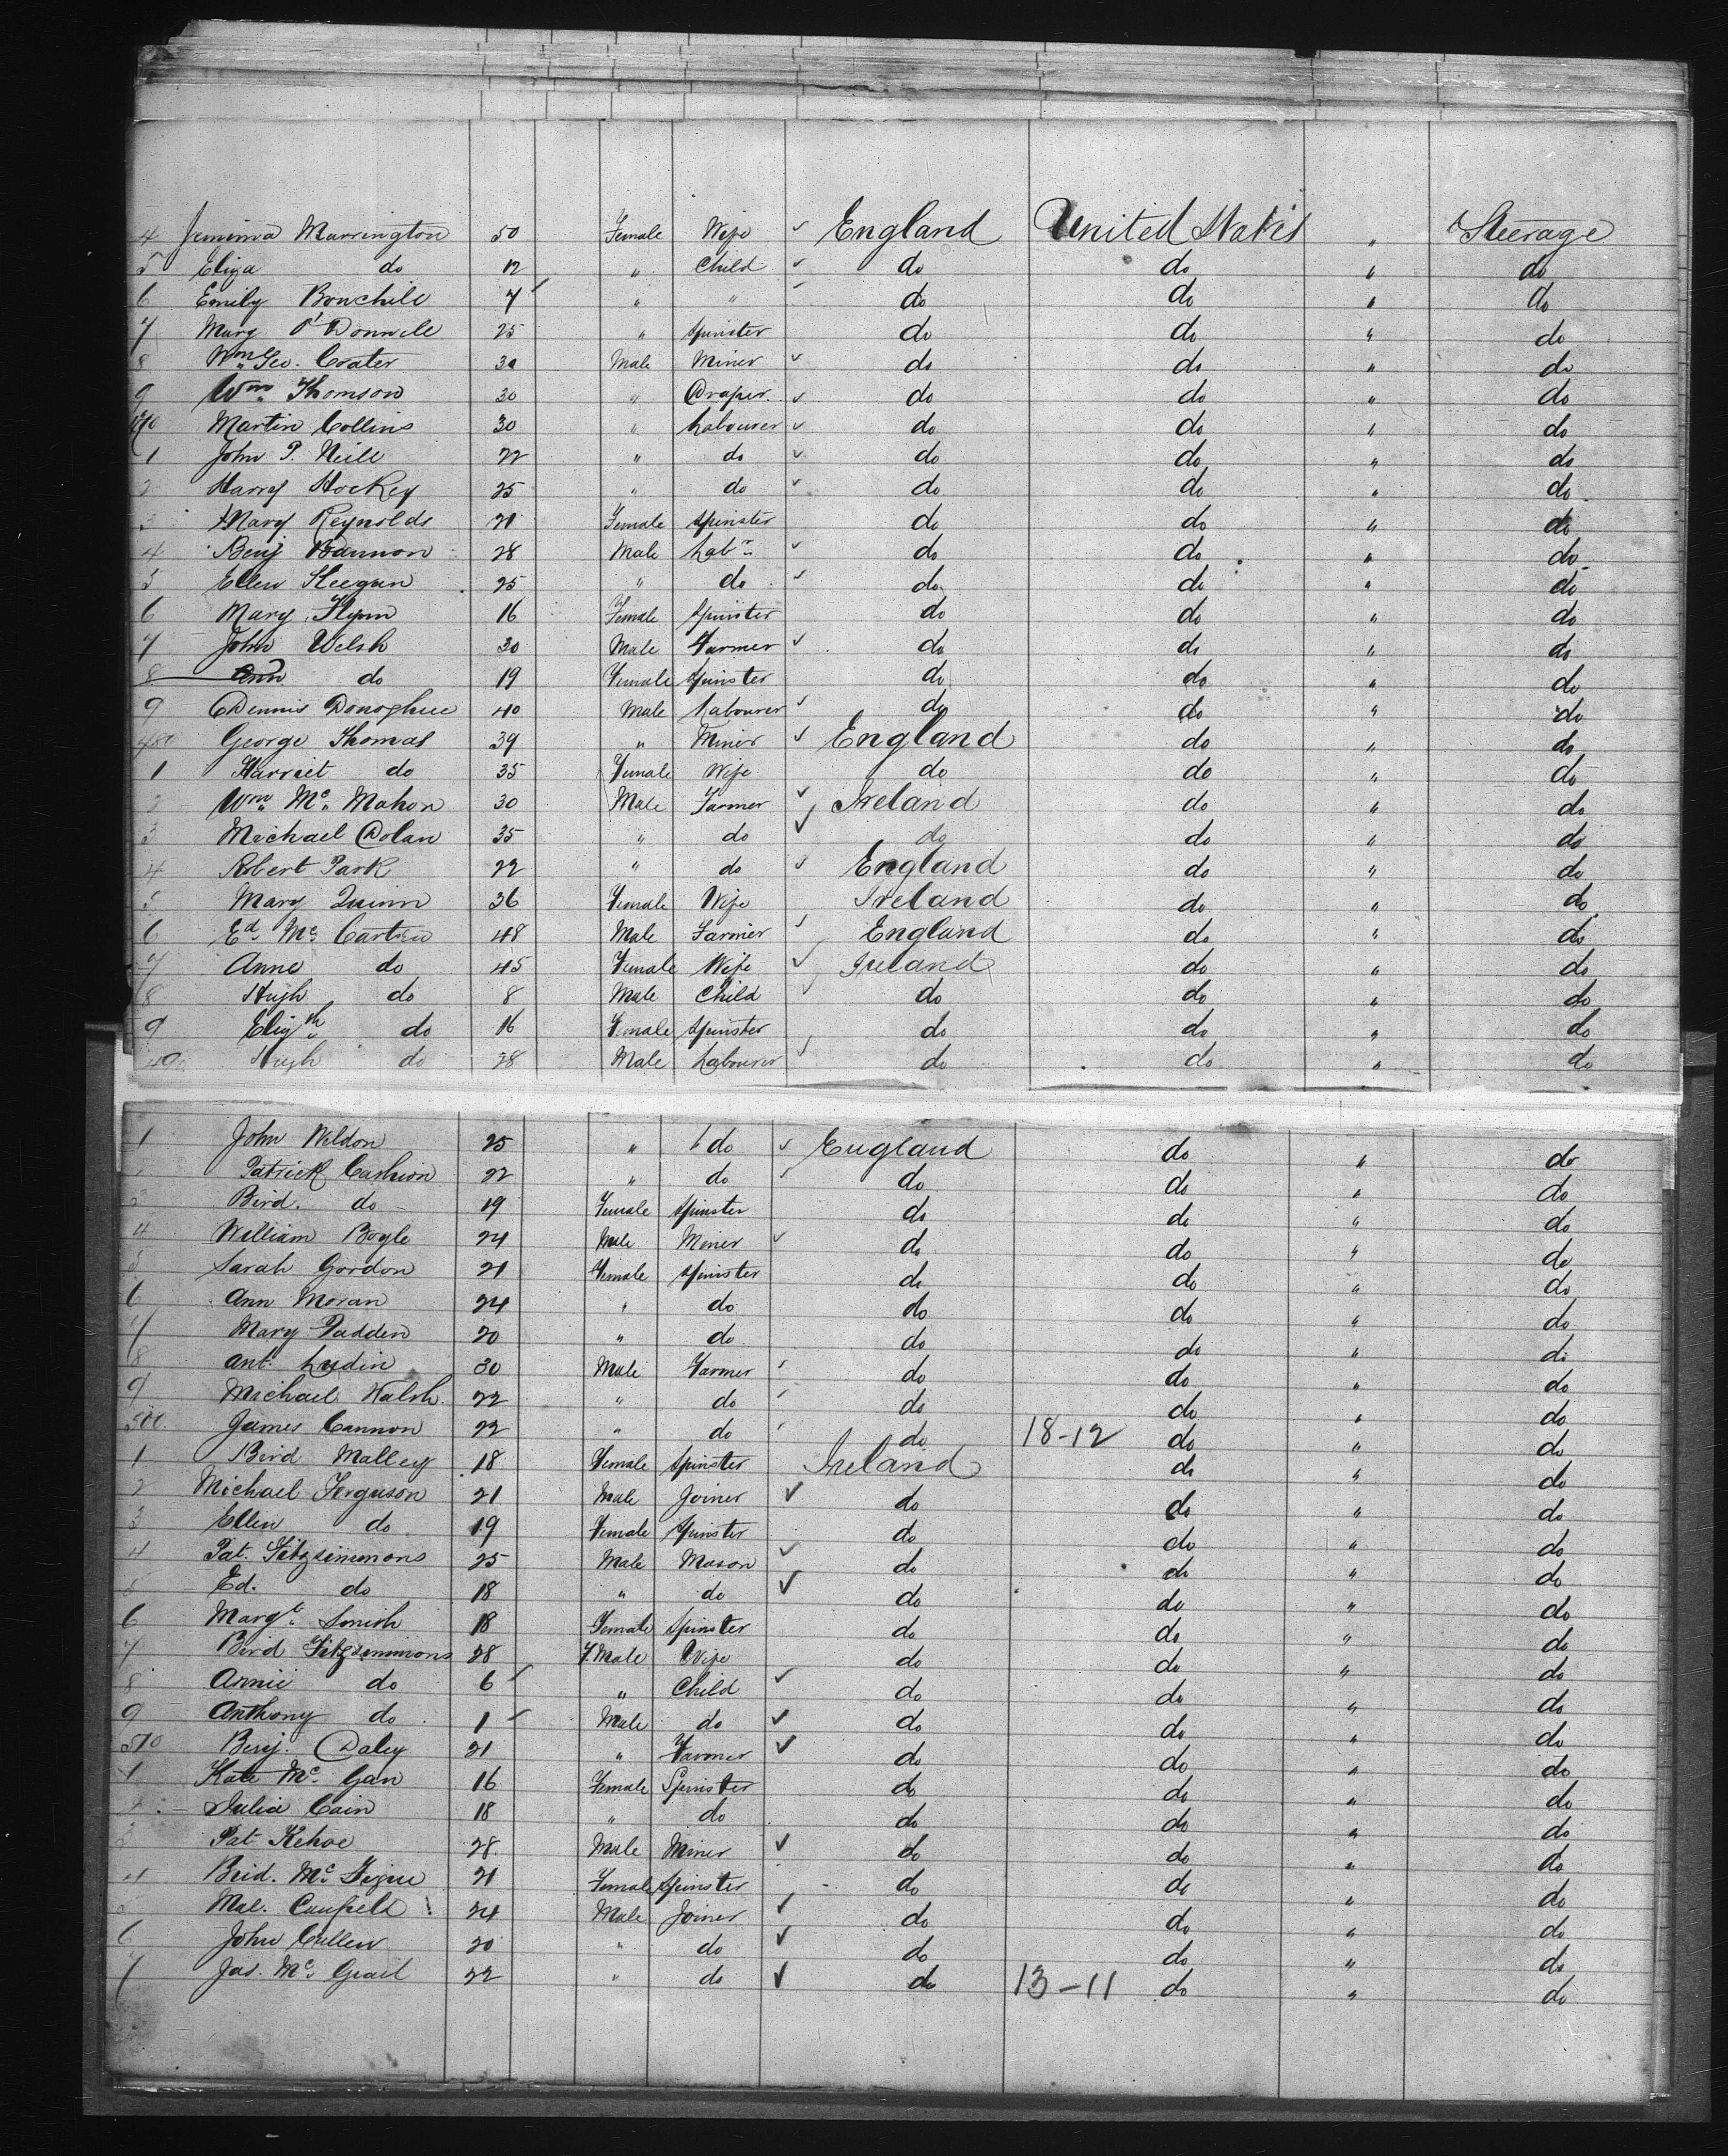 4 Jemima Marrington 50 Female Wife ✓ England United States " Steerage
5 Eliza do 12 " Child ✓ do do " do
6 Emily Bonchill 7 " " do do " do
7 Mary O'Donnell 25 " Spinster do do " do
8 Wm Geo. Coater 30 Male Miner ✓ do do " do
9 Wm Thomson 30 " Draper ✓ do do " do
470 Martin Collins 30 " Labourer ✓ do do " do
1 John P. Neill 22 " do ✓ do do " do
2 Harry Hockey 25 " do ✓ do do " do
3 Mary Reynolds 21 Female Spinster do do " do
4 Benj Bannon 28 Male Labr ✓ do do " do
5 Ellen Keegan 25 " do ✓ do do " do
6 Mary Flynn 16 Female Spinster do do " do
7 John Welsh 30 Male Farmer ✓ do do " do
8 Ann do 19 Female Spinster do do " do
9 Dennis Donoghue 40 Male Labourer ✓ do do " do
480 George Thomas 39 " Miner ✓ England do " do
1 Harriet do 35 Female Wife do do " do
2 Wm Mc Mahon 30 Male Farmer ✓ Ireland do " do
3 Michael Dolan 35 " do ✓ do do " do
4 Robert Park 22 " do ✓ England do " do
5 Mary Quinn 36 Female Wife Ireland do " do
6 Ed. Mc 48 Male Farmer ✓ England do " do
7 Anne do 45 Female Wife ✓ Ireland do " do
8 Hugh do 8 Male Child ✓ do do " do
9 Elizth do 16 Female Spinster do do " do
490 Hugh do 28 Male Labourer ✓ do do " do
1 John Weldon 25 " do ✓ England do " do
Patrick Cashion 22 " do do do " do
3 Bird. do 19 Female Spinster do do " do
4 William Bogle 24 Male Miner ✓ do do " do
5 Sarah Gordon 21 Female Spinster do do " do
6 Ann Moran 24 " do do do " do
7 Mary Padden 20 " do do do " do
8 Ant. Lydin 30 Male Farmer do do " do
9 Michael Walsh 22 " do do do " do
500 James Cannon 22 " do do 18-12 do " do
1 Bird Malley 18 Female Spinster Ireland do " do
2 Michael Ferguson 21 Male Joiner ✓ do do " do
3 Ellen do 19 Female Spinster do do " do
4 Pat. Fitzsimmons 25 Male Mason ✓ do do " do
5 Ed. do 18 " do ✓ do do " do
6 Margt. Smith 18 Female Spinster do do " do
7 Bird Fitzsimmons 28 F.Male Wife do do " do
8 Annie do 6 " Child ✓ do do " do
9 Anthony do 1 Male do ✓ do do " do
510 Benj. Daley 21 " Farmer ✓ do do " do
1 Kate Mc. Gan 16 Female Spinster do do " do
2 Julia Cain 18 " do do do " do
3 Pat Kehoe 28 Male Miner ✓ do do " do
4 Brid. Mc 21 Female Spinster do do " do
5 Mal. Caufield 24 Male Joiner ✓ do do " do
6 John Cullen 20 " do ✓ do do " do
7 Jas. Mc. Grail 22 " do ✓ do 13-11 do " do